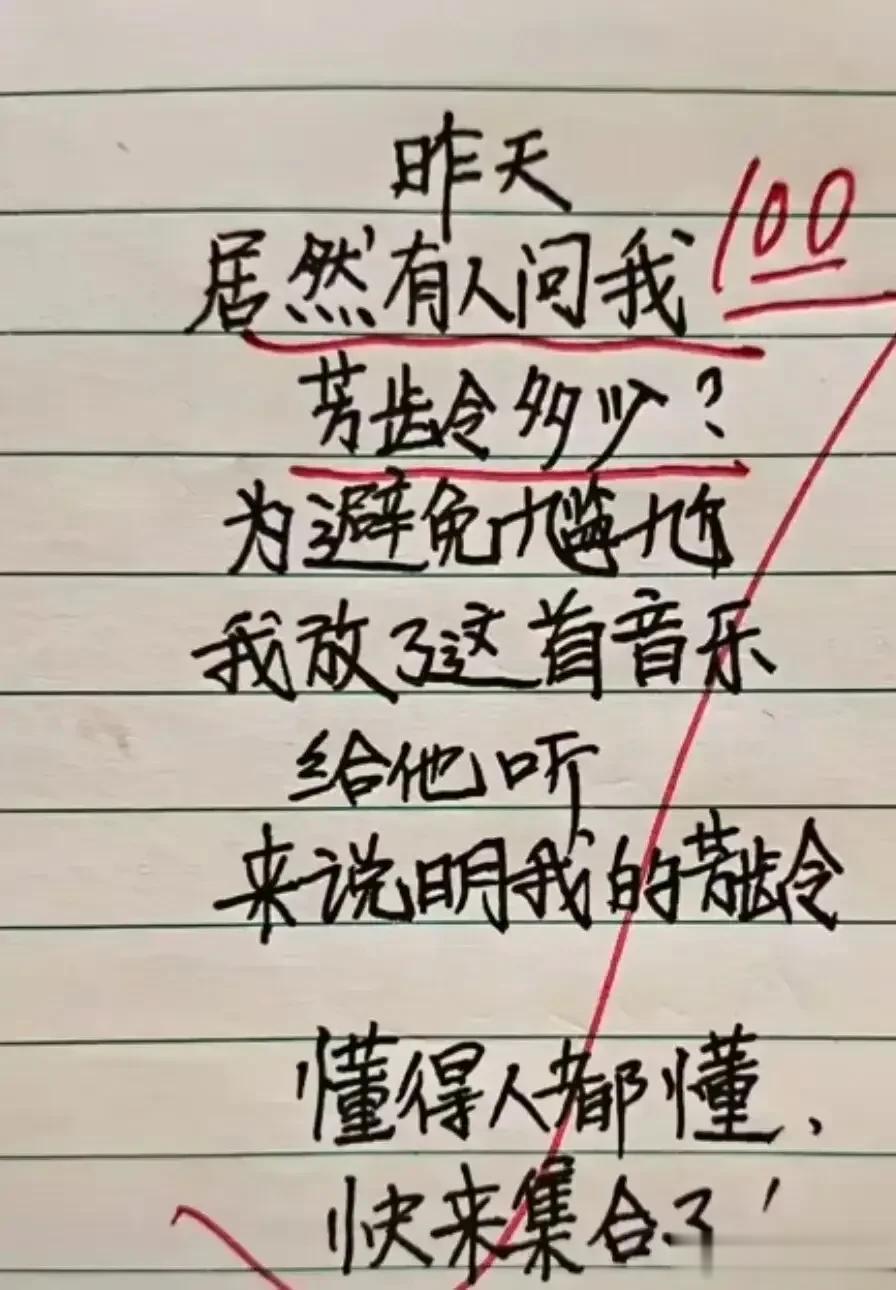 昨天
居然有人问我
100
芳龄多少?
为避免尴尬
我放了这首音乐
给他听
来说明我的芳龄
懂得人都懂、
快来集合了!